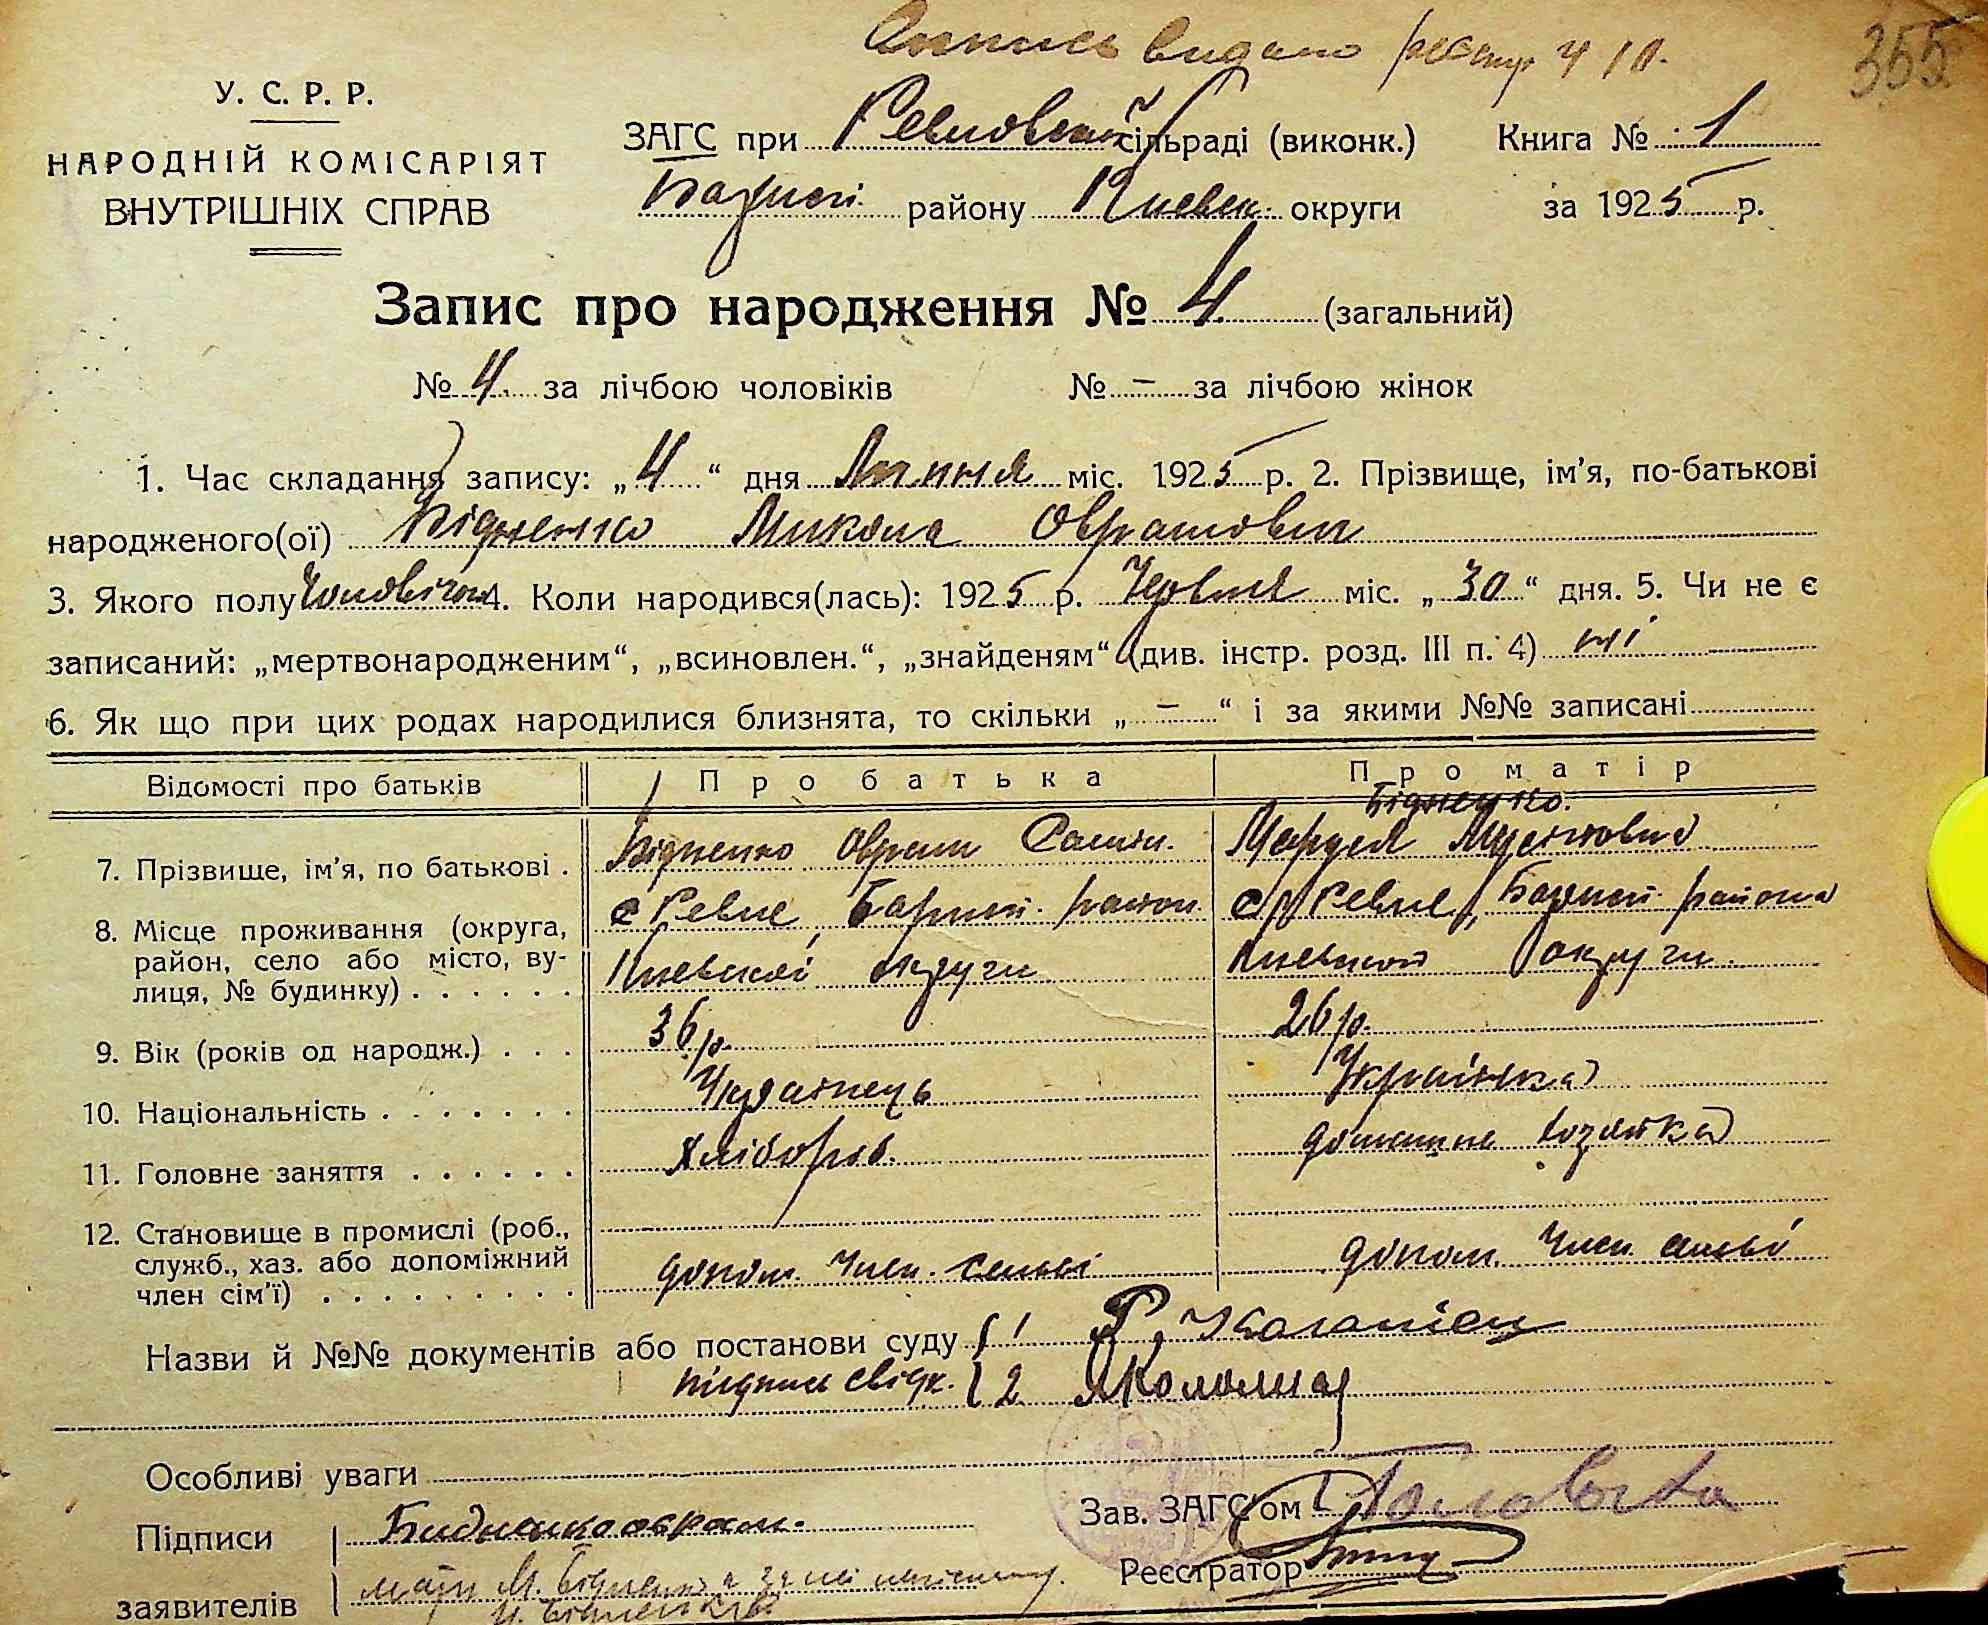 видано реєстр 4 10.
355
У. С. Р. Р.
НАРОДНІЙ КОМІСАРІЯТ
ВНУТРІШНІХ СПРАВ
ЗАГС при сільраді (виконк.) Книга № 1
району Киевск. округи за 1925 р.
Запис про народження № 4 (загальний)
№ 4. за лічбою чоловіків № – за лічбою жінок
1. Час складання запису: „4“ дня Липня міс. 1925 р. 2. Прізвище, ім'я, по-батькові
народженого(ої) Бідненко Микола Оврамович
3. Якого полу Чоловічого 4. Коли народився(лась): 1925 р. Червня міс. „30“ дня. 5. Чи не є
записаний: „мертвонародженим“, „всиновлен.“, „знайденям“ (див. інстр. розд. III п. 4) ні
6. Як що при цих родах народилися близнята, то скільки „–“ і за якими №№ записані
Відомості про батьків Про батька Про матір
Бідненко.
7. Прізвище, ім'я, по батькові . Бідненко Оврам
8. Місце проживання (округа, с Ревне, район. с. Ревне, района
район, село або місто, ву- Киевскої округи округи
лиця, № будинку) . . . . . .
9. Вік (років од народж.) . . . 36 р. 26 р.
10. Національність . . . . . . . Українець Українка
11. Головне заняття . . . . . . Хлібороб. домашне хозяйка
12. Становище в промислі (роб.,
служб., хаз. або допоміжний допом. член. семьї допом. член. семьї
член сім'ї) . . . . . . . . .
Назви й №№ документів або постанови суду 1
підписи свідк. 2
Особливі уваги
Підписи Зав. ЗАГС'ом
заявителів мати М. Бідненко а за неї Реєстратор